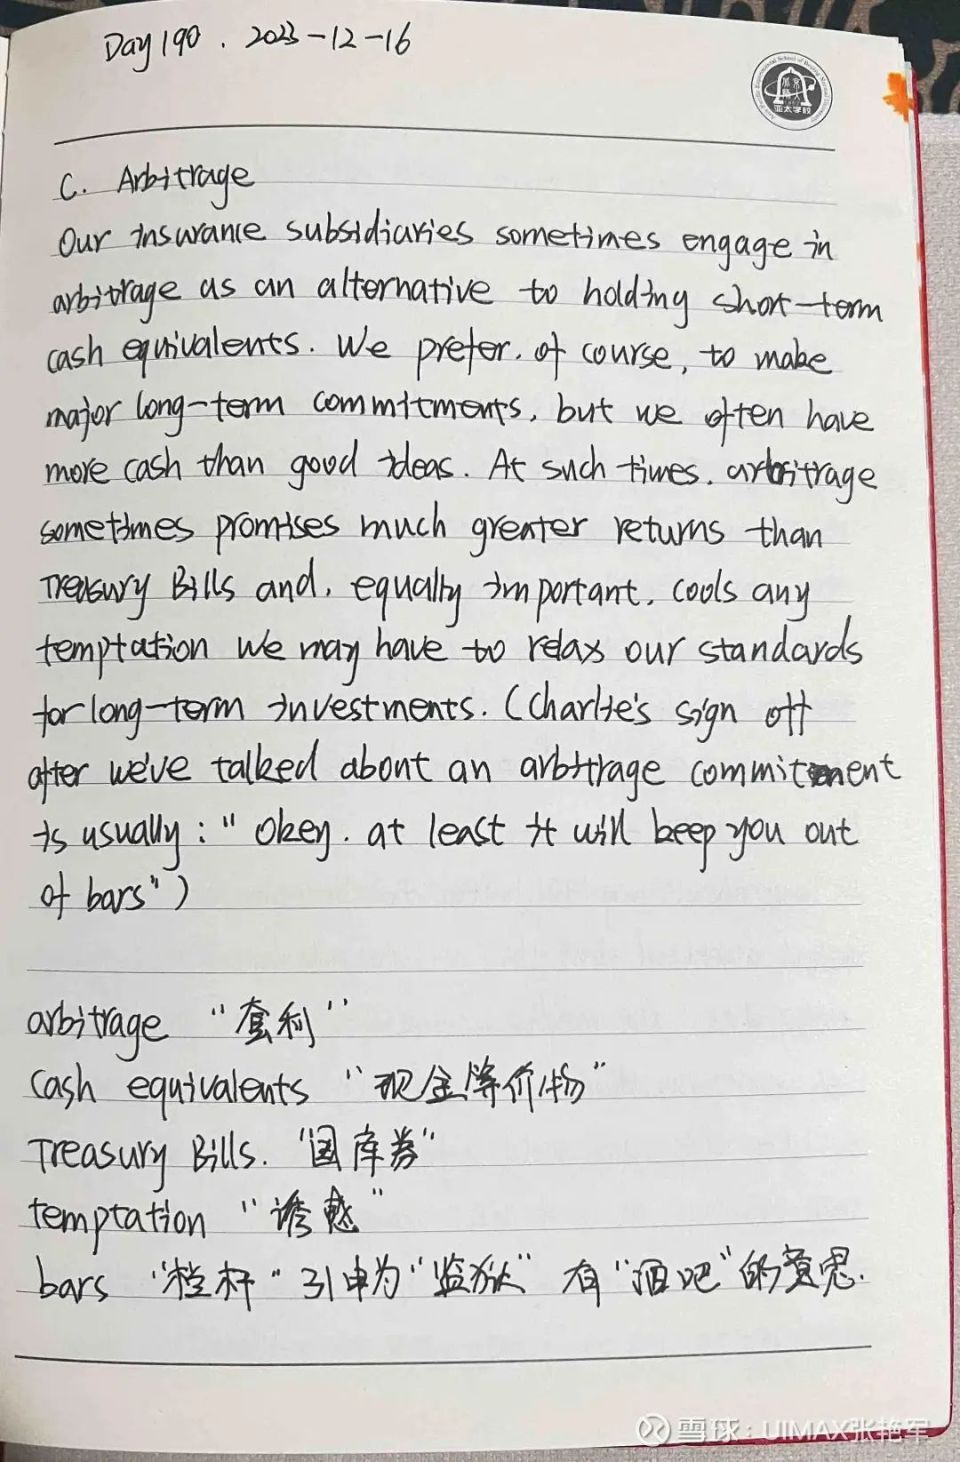 Day 190 . 2023-12-16
亚太学校
C. Arbitrage
Our insurance subsidiaries sometimes engage in
arbitrage as an alternative to holding short-term
cash equivalents. We prefer, of course, to make
major long-term commitments, but we often have
more cash than good ideas. At such times, arbitrage
sometimes promises much greater returns than
Treasury Bills and, equally important, cools any
temptation we may have to relax our standards
for long-term investments. (Charlie's sign off
after we've talked about an arbitrage commitment
is usually: "Okey. at least it will keep you out
of bars")
arbitrage "套利"
Cash equivalents "现金等价物"
Treasury Bills. "国库券"
temptation "诱惑"
bars "栏杆" 引申为"监狱" 有"酒吧"的意思.
雪球：UIMAX张艳军